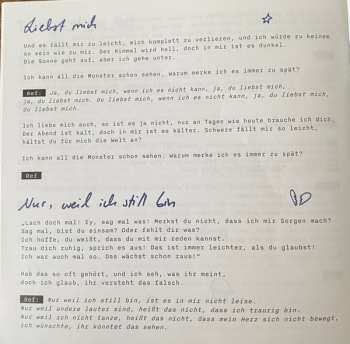 Liebst mich
Und es fällt mir zu leicht, mich komplett zu verlieren, und ich würde zu keinem
so sein wie zu mir. Der Himmel wird hell, doch in mir ist es dunkel.
Die Sonne geht auf, aber ich gehe unter.
Ich kann all die Monster schon sehen. Warum merke ich es immer zu spät?
Ref: Ja, du liebst mich, wenn ich es nicht kann, ja, du liebst mich,
ja, du liebst mich, du liebst mich, wenn ich es nicht kann, ja, du liebst mich,
du liebst mich.
Ich liebe mich auch, so ist es ja nicht, nur an Tagen wie heute brauche ich dich.
Der Abend ist kalt, doch in mir ist es kälter. Schwere fällt mir so leicht,
hältst du für mich die Welt an?
Ich kann all die Monster schon sehen. Warum merke ich es immer zu spät?
Ref
Nur, weil ich still bin
„Lach doch mal! Ey, sag mal was! Merkst du nicht, dass ich mir Sorgen mach?
Sag mal, bist du einsam? Oder fehlt dir was?
Ich hoffe, du weißt, dass du mit mir reden kannst.
Trau dich ruhig, sprich es aus! Das ist immer leichter, als du glaubst!
Ich war auch mal so. Das wächst schon raus!"
Hab das so oft gehört, und ich seh, was ihr meint,
doch ich glaub, ihr versteht das falsch.
Ref: Nur weil ich still bin, ist es in mir nicht leise.
Nur weil andre lauter sind, heißt das nicht, dass ich traurig bin.
Nur weil ich nicht tanze, heißt das nicht, dass mein Herz sich nicht bewegt.
Ich wünschte, ihr könntet das sehen.